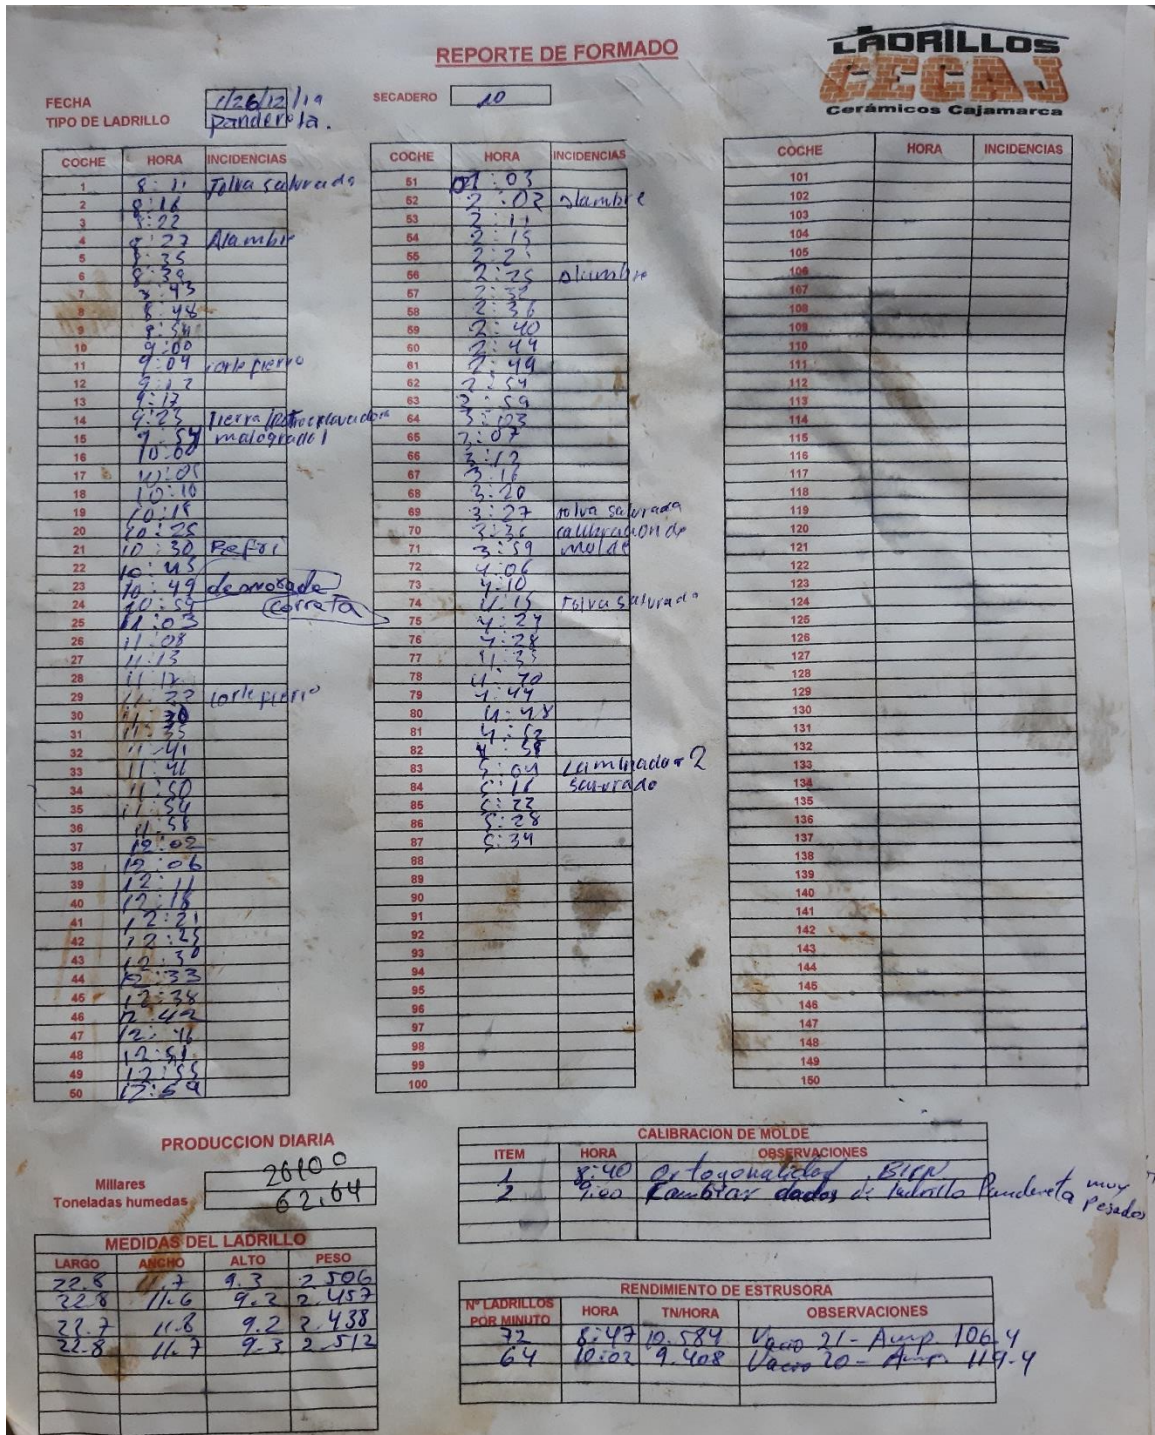 REPORTE DE FORMADO
LADRILLOS
CECAJ
Cerámicos Cajamarca
FECHA 26/12/19
TIPO DE LADRILLO
SECADERO 10
COCHE HORA INCIDENCIAS
1 8:11 Tolva saturada
2 8:16
3 8:22
4 8:27 Alambre
5 8:35
6 8:39
7 8:43
8 8:48
9 8:54
10 9:00
11 9:04
12 9:12
13 9:17
14 9:23 Tierra
15 9:54 malograda
16 10:00
17 10:05
18 10:10
19 10:18
20 10:25
21 10:30 Refri
22 10:45
23 10:49 demorada
24 10:54 correta
25 11:03
26 11:08
27 11:13
28 11:17
29 11:22
30 11:30
31 11:35
32 11:41
33 11:46
34 11:50
35 11:54
36 11:58
37 12:02
38 12:06
39 12:11
40 12:18
41 12:21
42 12:25
43 12:30
44 12:33
45 12:38
46 12:42
47 12:46
48 12:51
49 12:55
50 12:59
COCHE HORA INCIDENCIAS
51 :03
52 2:02 alambre
53 2:11
54 2:15
55 2:21
56 2:25 alambre
57 2:32
58 2:36
59 2:40
60 2:44
61 2:49
62 2:54
63 2:59
64 3:03
65 3:07
66 3:12
67 3:16
68 3:20
69 3:27 tolva saturada
70 3:36 calibracion de
71 3:59 molde
72 4:06
73 4:10
74 4:15 Tolva saturada
75 4:24
76 4:28
77 4:33
78 4:40
79 4:44
80 4:48
81 4:52
82 4:58
83 5:04 Laminador 2
84 5:16 saturado
85 5:22
86 5:28
87 5:34
88
89
90
91
92
93
94
95
96
97
98
99
100
COCHE HORA INCIDENCIAS
101
102
103
104
105
106
107
108
109
110
111
112
113
114
115
116
117
118
119
120
121
122
123
124
125
126
127
128
129
130
131
132
133
134
135
136
137
138
139
140
141
142
143
144
145
146
147
148
149
150
PRODUCCION DIARIA
Millares 26100
Toneladas humedas 62.64
MEDIDAS DEL LADRILLO
LARGO ANCHO ALTO PESO
22.8 11.7 9.3 2.506
22.8 11.6 9.2 2.457
22.7 11.8 9.2 2.438
22.8 11.7 9.3 2.512
CALIBRACION DE MOLDE
ITEM HORA OBSERVACIONES
1 8:40 Ortogonalidad BIEN
2 9:00 Cambiar dados de ladrillo Pandereta muy pesados
RENDIMIENTO DE ESTRUSORA
Nº LADRILLOS POR MINUTO HORA TN/HORA OBSERVACIONES
72 8:47 10.584 Vacio 21 - Amp. 106.4
64 10:02 9.408 Vacio 20 - Amp. 119.4